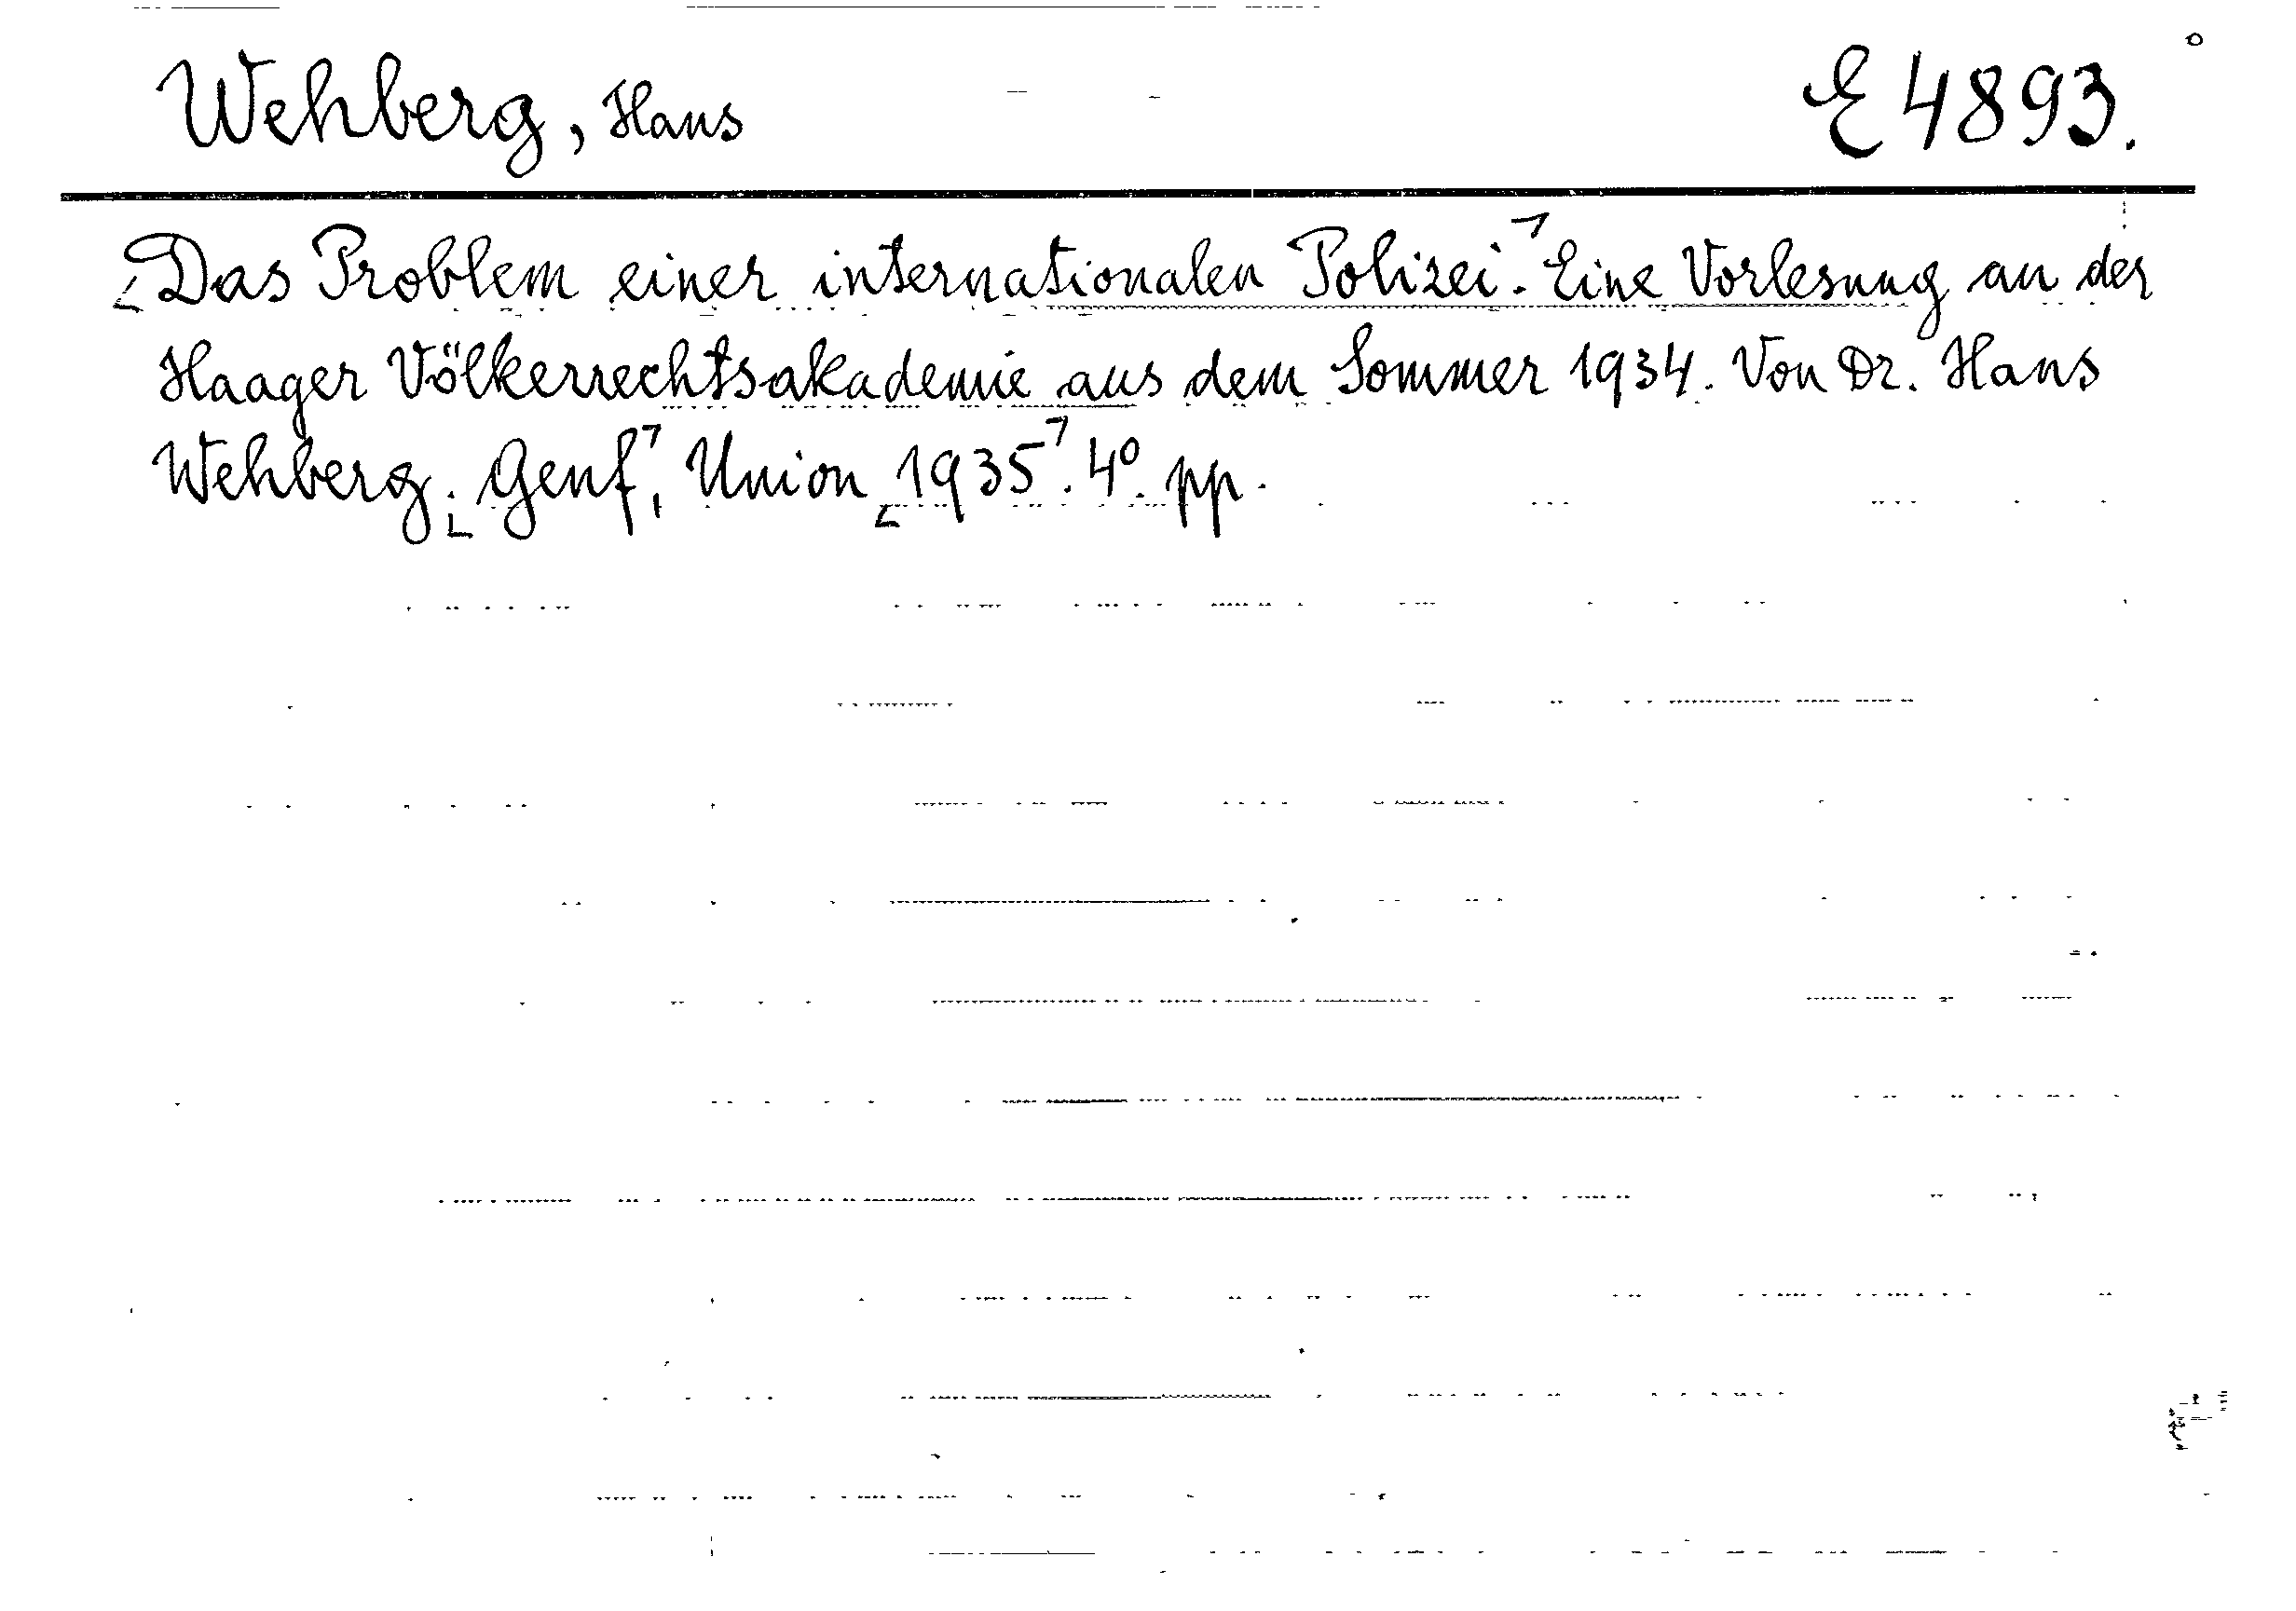 Wehberg, Hans E 4893.
Das Problem einer internationalen Polizei. Eine Vorlesung an der
Haager Völkerrechtsakademie aus dem Sommer 1934. Von Dr. Hans
Wehberg. Genf, Union 1935. 4° pp.